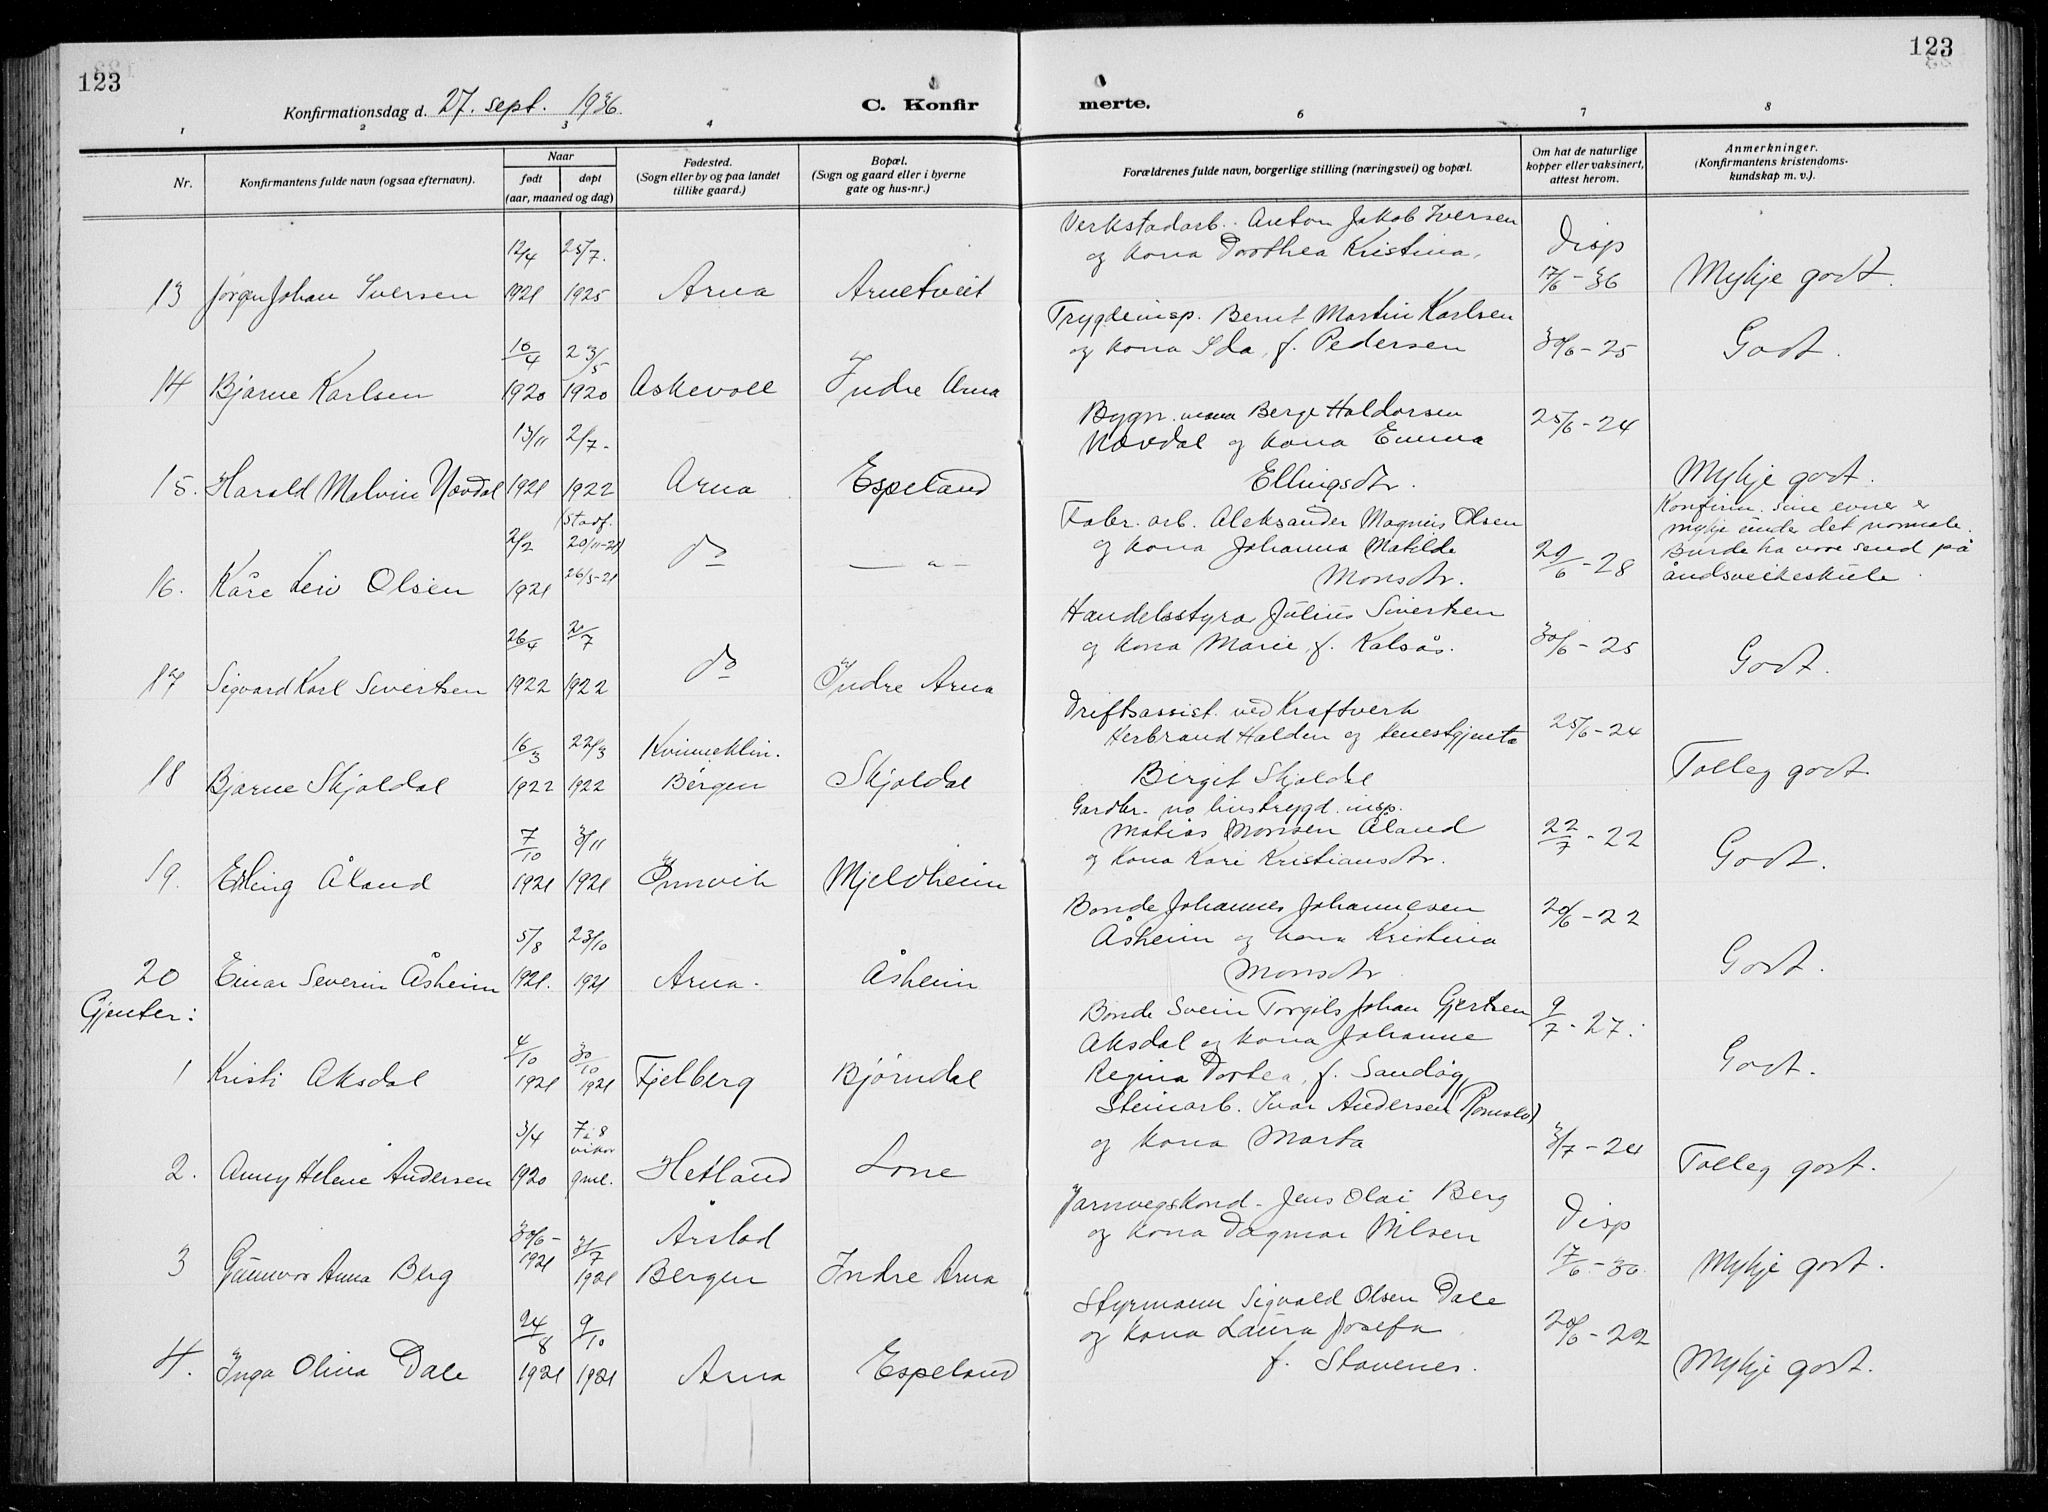 123
123
Konfirmationsdag d. 27. sept. 1936.
C. Konfir
merte.
1 2 3 4 6 7 8
Nr.
Konfirmantens fulde navn (ogsaa efternavn).
Naar
født
døpt
(aar, maaned og dag)
Fødested.
(Sogn eller by og paa landet
tillike gaard.)
Bopæl.
(Sogn og gaard eller i byerne
gate og hus-nr.)
Forældrenes fulde navn, borgerlige stilling (næringsvei) og bopæl.
Om hat de naturlige
kopper eller vaksinert,
attest herom.
Anmerkninger.
(Konfirmantens kristendoms-
kundskap m. v.).
12/4 25/7.
13 Jørgen Johan Iversen 1921 1925 Arna Arnetveit
Verkstadarb. Anton Jakob Iversen
og kona Dorthea Kristina.
Disp
17/6-36
Mykje godt.
16/4 23/5
14 Bjarne Karlsen 1920 1920 Askevoll Indre Arna
Trygdeinsp. Bernt Martin Karlsen
og kona Ida, f. Pedersen
30/6-25
Godt.
13/11 2/7.
15. Harald Malvin Navdal 1921 1922 Arna Espeland
Bygn. mann Berge Haldorsen
Navdal og kona Emma
Ellingsdtr.
25/6-24
Mykje godt.
2/2 (stadf.
20/11-21)
16. Kåre Leiv Olsen 1921 26/3-21 do — " —
Fabr. arb. Aleksander Magnus Olsen
og kona Johanna Matilde
Monsdtr.
29/6-28
Konfirm. sine evner er
mykje under det normale.
Burde ha vore send på
åndsveikeskule.
26/4 2/7
17 Sigvard Karl Sivertsen 1922 1922 do Indre Arna
Handelsstyrar Julius Sivertsen
og kona Marie, f. Kalsås.
30/6-25
Godt.
16/3 22/3 Kvinneklin.
18 Bjarne Skjoldal 1922 1922 Bergen Skjoldal
Driftsassist. ved Kraftverk
Herbrand Halden og tenestgjenta
Birgit Skjoldal
25/6-24
Tolleg godt
7/10 3/11
19. Erling Åland 1921 1921 Innvik Mjeldheim
Gardbr. no livstrygd. insp.
Matias Monsen Åland
og kona Kari Kristiansdtr.
22/7-22
Godt.
5/8 23/10
20 Einar Severin Åsheim 1921. 1921 Arna. Åsheim
Bonde Johannes Johannesen
Åsheim og kona Kristina
Monsdtr
20/6-22
Godt.
Gjenter:
4/10 30/10
1 Kristi Aksdal 1921 1921 Fjelberg Bjørndal
Bonde Svein Torgils Johan Gjertsen
Aksdal og kona Johanne
Regina Dortea, f. Sandøy
9/7-27.
Godt.
3/4 7 à 8
vikor
2. Anny Helene Andersen 1920 gml. Hetland Lone
Steinarb. Ivar Andersen (Romslo)
og kona Marta
3/7-24
Tolleg godt.
30/6- 31/7 Årstad
3 Gunnvor Anna Berg 1921 1921 Bergen Indre Arna
Jarnvegskond. Jens Olai Berg
og kona Dagmar Nilsen
Disp
17/6-36.
Mykje godt.
24/8 9/10
4. Inga Olina Dale 1921 1921 Arna Espeland
Styrmann Sigvald Olsen Dale
og kona Laura Josefa
f. Stavenes.
20/6-22
Mykje godt.